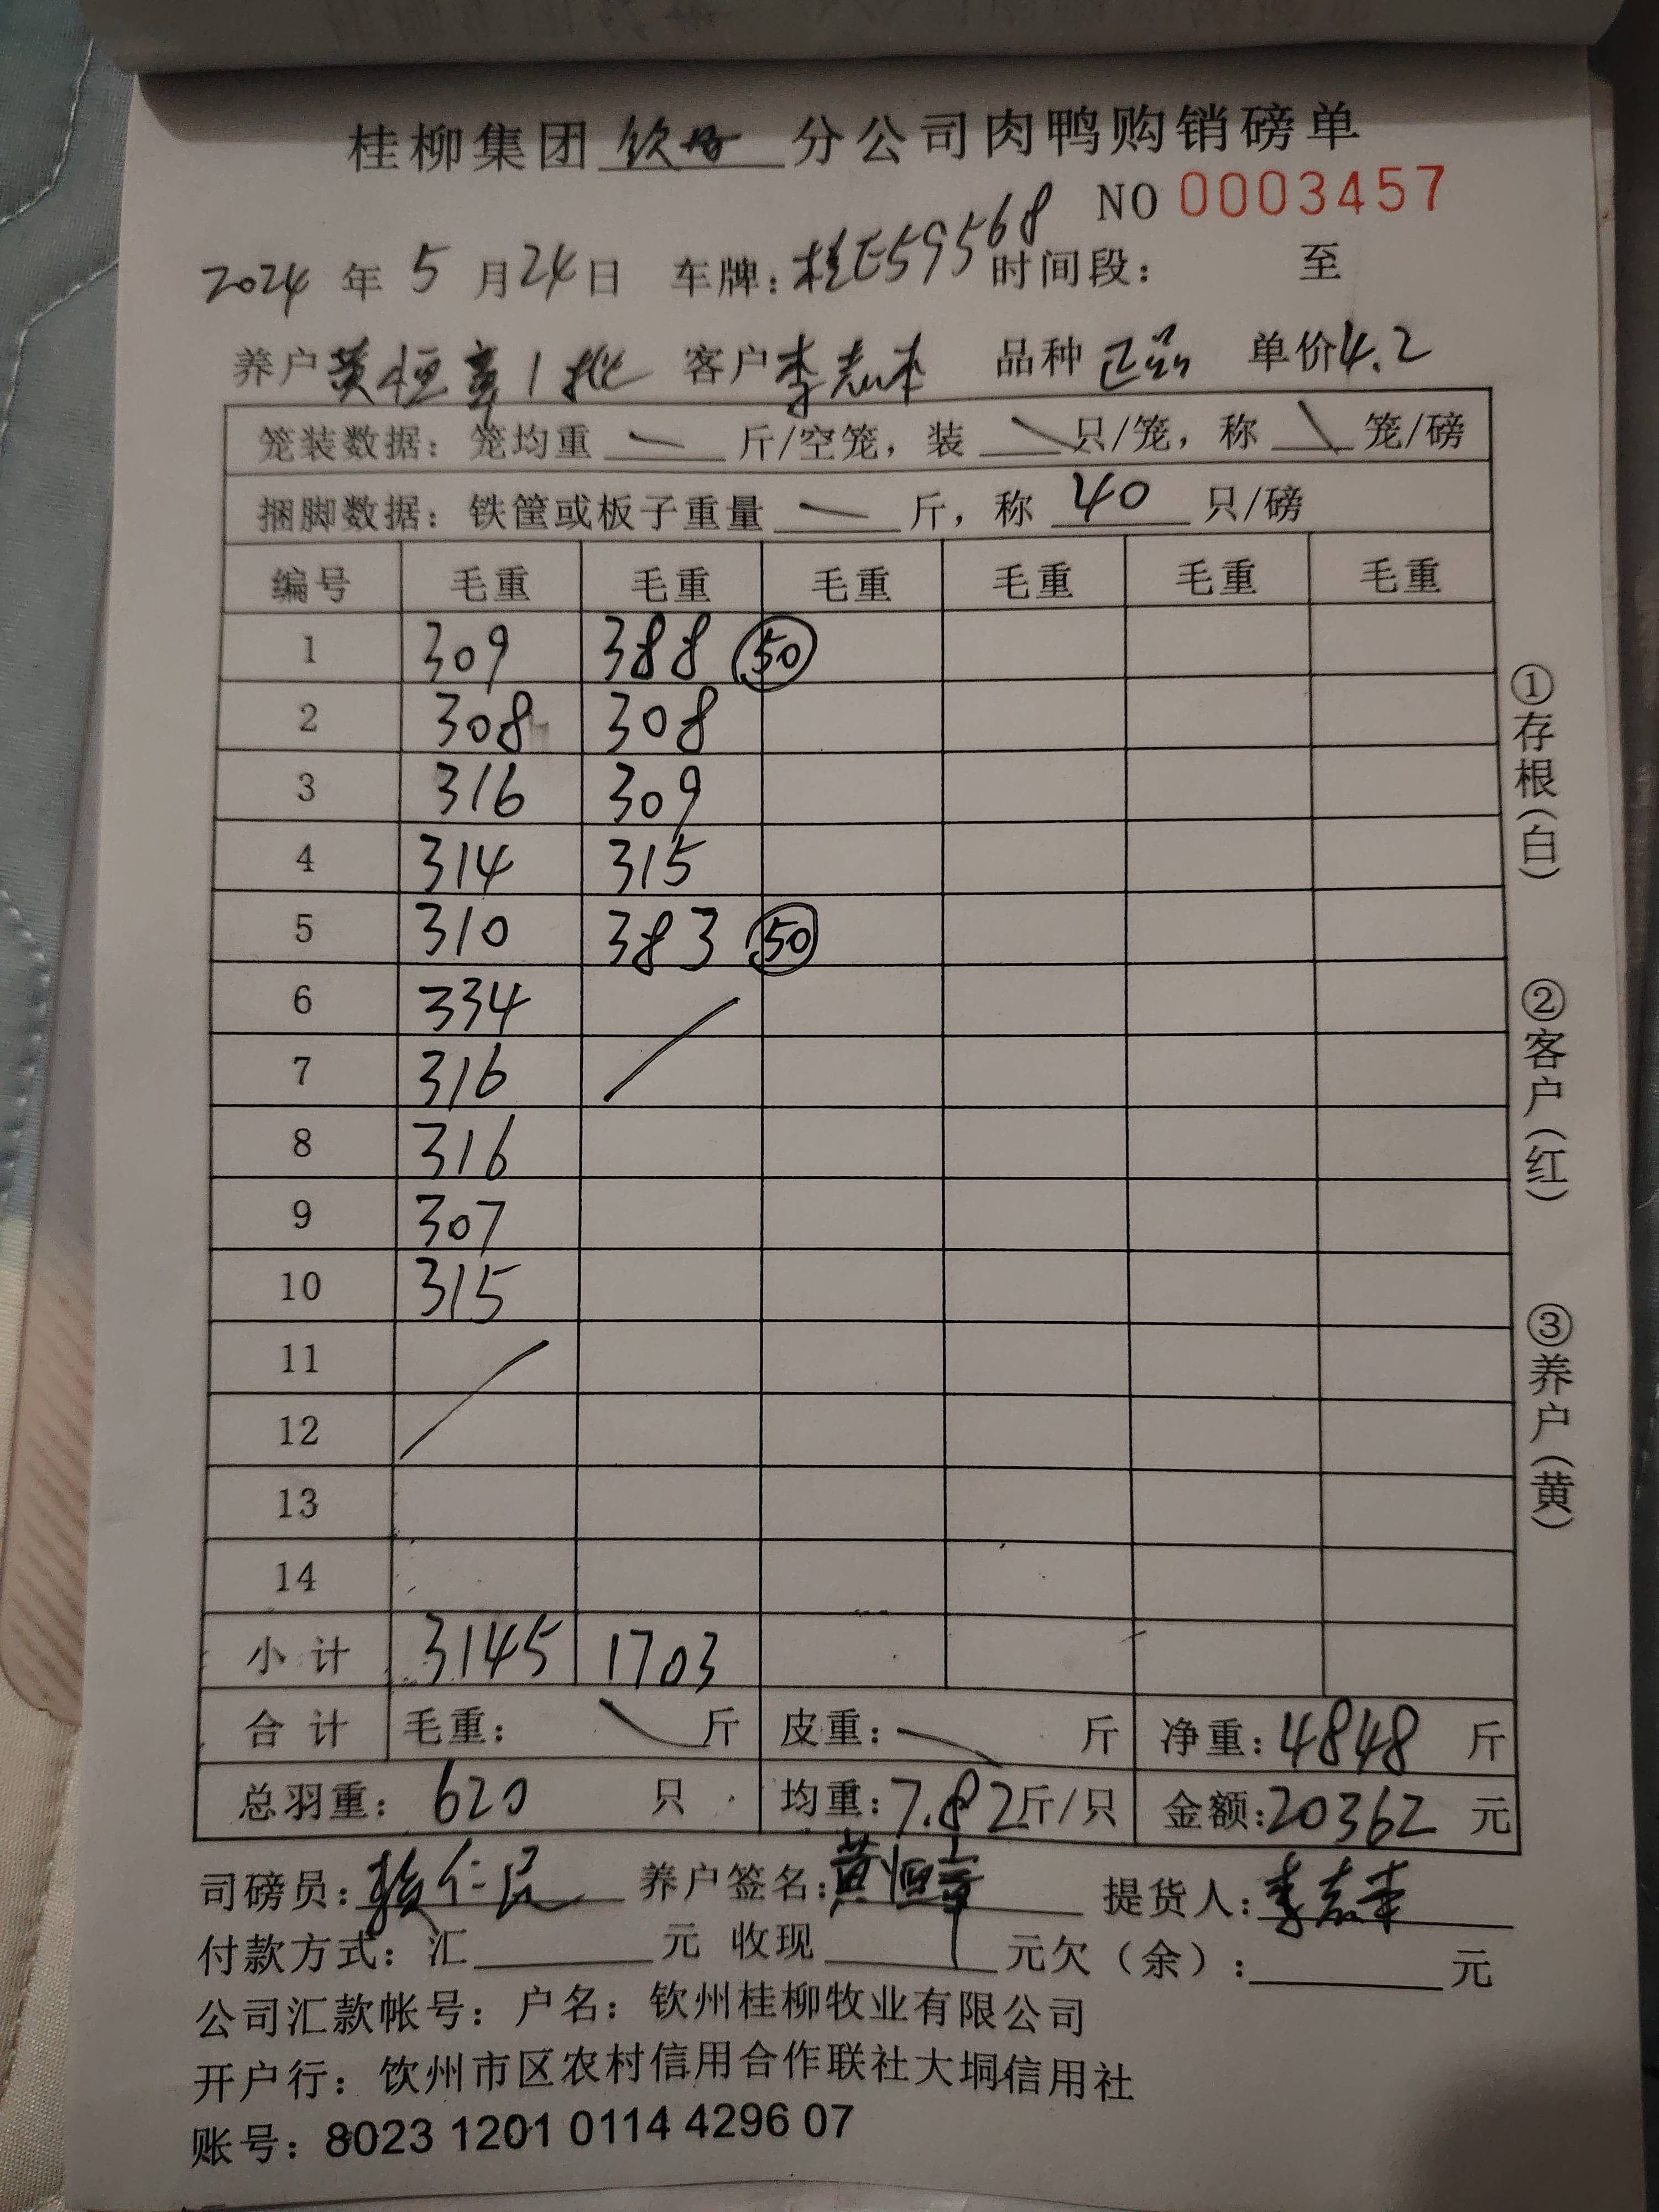 桂柳集团 钦州 分公司肉鸭购销磅单
NO 0003457
2024 年 5 月 24 日 车牌: 桂E59568 时间段: 至
养户 黄恒章 1批 客户 李志本 品种 正品 单价 4.2
笼装数据: 笼均重 斤/空笼, 装 只/笼, 称 笼/磅
捆脚数据: 铁筐或板子重量 斤, 称 40 只/磅
编号 毛重 毛重 毛重 毛重 毛重 毛重
1 309 388 50
2 308 308
3 316 309
4 314 315
5 310 383 50
6 334
7 316
8 316
9 307
10 315
11
12
13
14
小计 3145 1703
合计 毛重: 斤 皮重: 斤 净重: 4848 斤
总羽重: 620 只 均重: 7.82 斤/只 金额: 20362 元
司磅员: 仁民 养户签名: 黄恒章 提货人: 李志本
付款方式: 汇 元 收现 元欠(余): 元
公司汇款帐号: 户名: 钦州桂柳牧业有限公司
开户行: 钦州市区农村信用合作联社大垌信用社
账号: 8023 1201 0114 4296 07
①存根(白)
②客户(红)
③养户(黄)